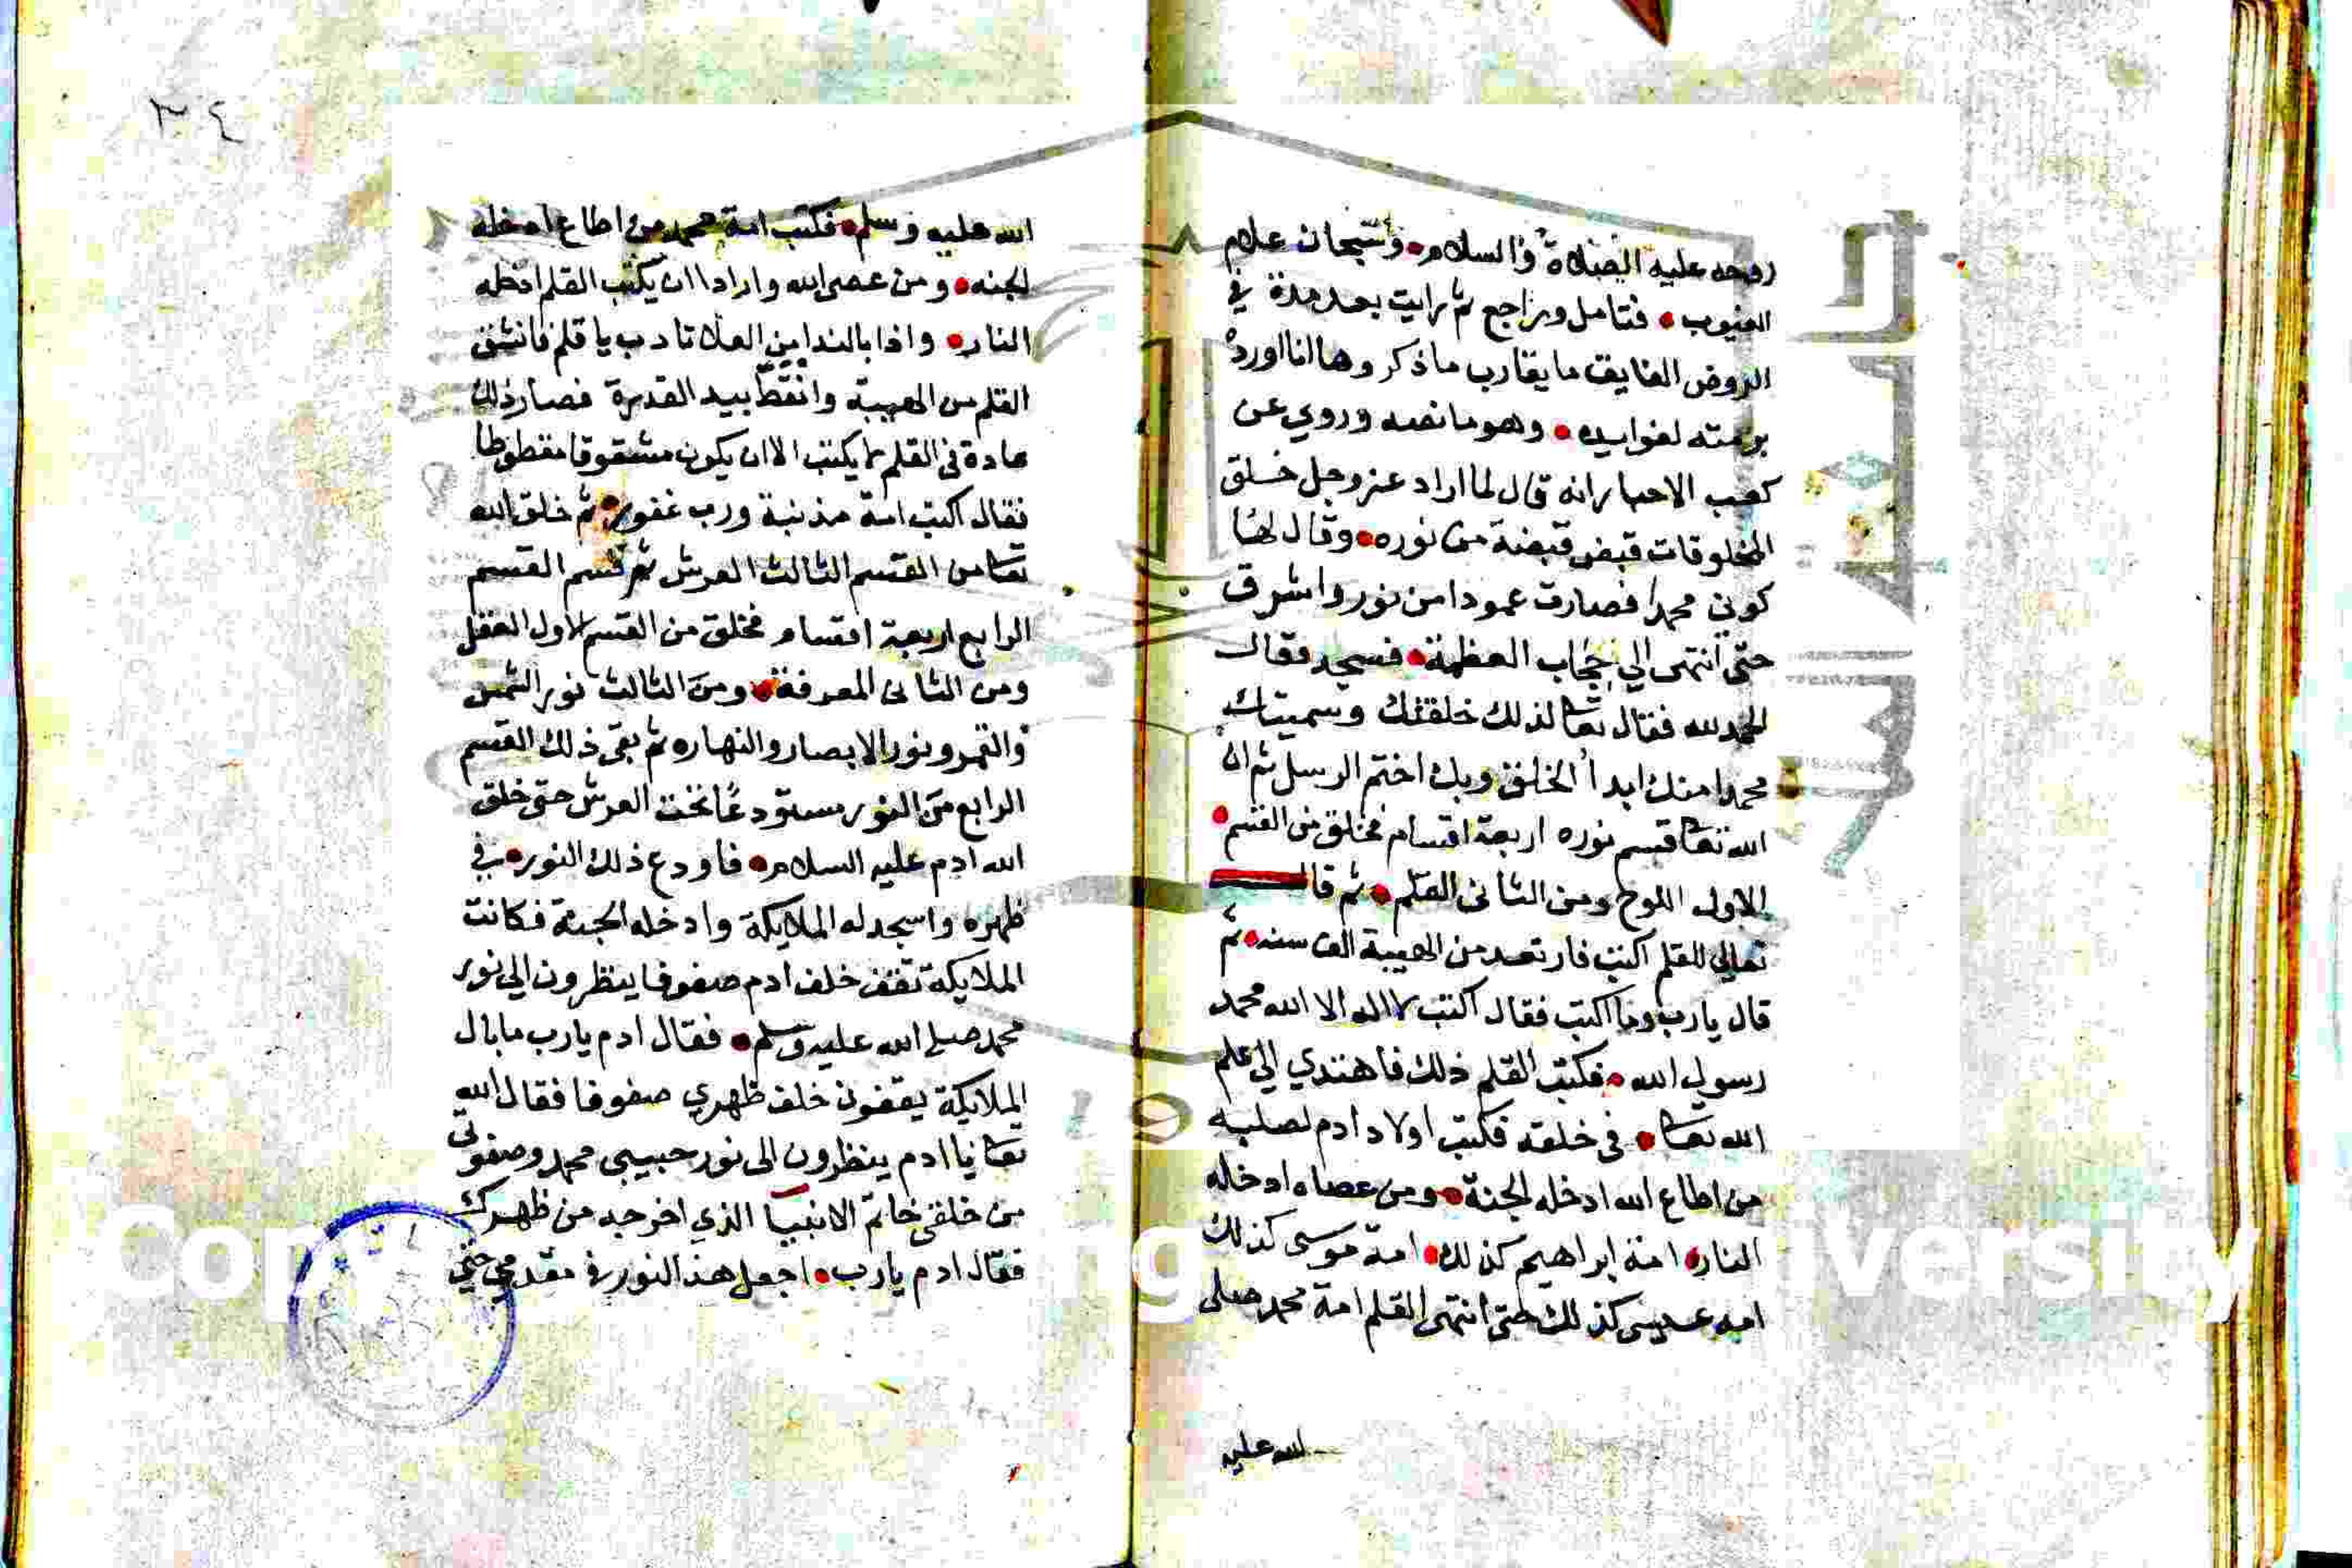 روحه عليه الصلاة والسلام وسبحان علام
الغيوب فتامل وراجع ثم رايت بعد مدة في
الروض الفايق ما يقارب ما ذكر وها انا اورده
برمته لفوايده وهو ما نصه وروي عن
كعب الاحبار انه قال لما اراد عز وجل خلق
المخلوقات قبض قبضة من نوره وقال لها
كوني محمدا فصارت عمودا من نور واشرق
حتى انتهى الي حجاب العظمة فسجد فقال
الحمد لله فقال تعا لذلك خلقتك وسميتك
محمدا منك ابدأ الخلق وبك اختم الرسل ثم ان
الله تعا قسم نوره اربعة اقسام فخلق من القسم
الاول اللوح ومن الثانى القلم ثم قال
تعالي للقلم اكتب فارتعد من الهيبة الف سنه ثم
قال يارب وما اكتب فقال اكتب لا اله الا الله محمد
رسول الله فكتب القلم ذلك فاهتدي الي علم
الله تعا في خلقه فكتب اولاد ادم لصلبه
من اطاع الله ادخله الجنة ومن عصاه ادخله
النار امة ابراهيم كذلك امة موسى كذلك
امه عيسى كذلك حتى انتهى القلم امة محمد صلى
لله عليه
٣٤
الله عليه وسلم فكتب امة محمد من اطاع ادخله
الجنه ومن عصى الله واراد ان يكتب القلم ادخله
النار واذا بالندا من العلا تادب يا قلم فانشق
القلم من الهيبة وانقط بيد القدرة فصار ذلك
عادة في القلم لا يكتب الا ان يكون مشقوقا مقطوطا
فقال اكتب امة مذنبة ورب غفور ثم خلق الله
تعا من القسم الثالث العرش ثم قسم القسم
الرابع اربعة اقسام فخلق من القسم الاول العقل
ومن الثانى المعرفة ومن الثالث نور الشمس
والقمر ونور الابصار والنهاره ثم بقى ذلك القسم
الرابع من النور مستودعا تحت العرش حتى خلق
الله ادم عليه السلام فاودع ذلك النور في
ظهره واسجد له الملايكة وادخله الجنة فكانت
الملايكة تقف خلف ادم صفوفا ينظرون الي نور
محمد صلى الله عليه وسلم فقال ادم يارب ما بال
الملايكة يقفون خلف ظهري صفوفا فقال الله
تعا يا ادم ينظرون الى نور حبيبي محمد وصفوتي
من خلقى خاتم الانبيا الذي اخرجه من ظهرك
فقال ادم يارب اجعل هذا النور في مقدمي حتي